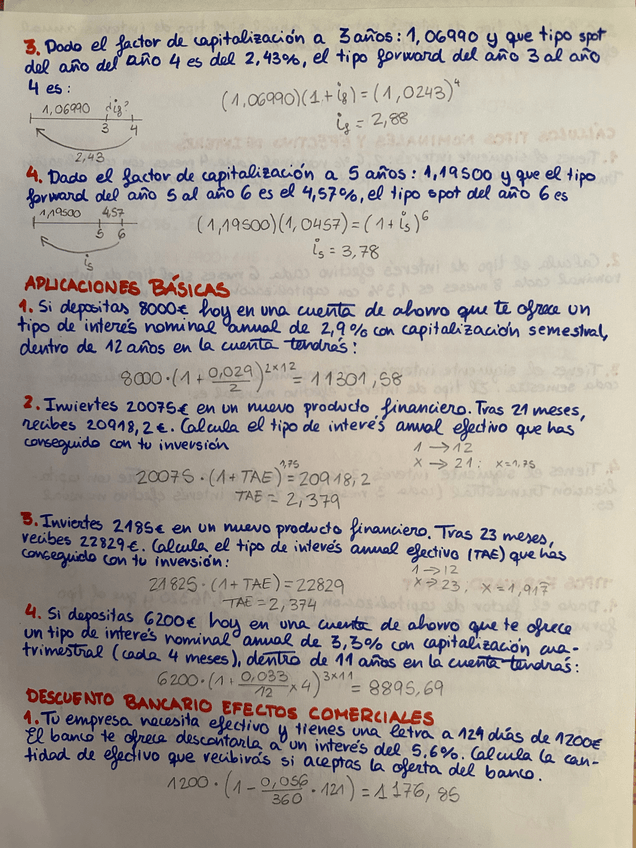 3. Dado el factor de capitalización a 3 años: 1,06990 y que tipo spot
del año del año 4 es del 2,43%, el tipo forward del año 3 al año
4 es:
1,06990 ¿if?
3 4
2,43
(1,06990)(1+if) = (1,0243)^4
if = 2,88
4. Dado el factor de capitalización a 5 años: 1,19500 y que el tipo
forward del año 5 al año 6 es el 4,57%, el tipo spot del año 6 es
1,19500 4,57
5 6
is
(1,19500)(1,0457) = (1+is)^6
is = 3,78
APLICACIONES BÁSICAS
1. Si depositas 8000€ hoy en una cuenta de ahorro que te ofrece un
tipo de interés nominal anual de 2,9% con capitalización semestral,
dentro de 12 años en la cuenta tendrás:
8000·(1+0,029/2)^2×12 = 11301,58
2. Inviertes 20075€ en un nuevo producto financiero. Tras 21 meses,
recibes 20918,2€. Calcula el tipo de interés anual efectivo que has
conseguido con tu inversión
1 → 12
x → 21; x=1,75
20075·(1+TAE)^1,75 = 20918,2
TAE = 2,379
3. Inviertes 2185€ en un nuevo producto financiero. Tras 23 meses,
recibes 22829€. Calcula el tipo de interés anual efectivo (TAE) que has
conseguido con tu inversión:
1 → 12
x → 23, x=1,917
21825·(1+TAE) = 22829
TAE = 2,374
4. Si depositas 6200€ hoy en una cuenta de ahorro que te ofrece
un tipo de interés nominal anual de 3,3% con capitalización cua-
trimestral (cada 4 meses), dentro de 11 años en la cuenta tendrás:
6200·(1+0,033/12×4)^3×11 = 8895,69
DESCUENTO BANCARIO EFECTOS COMERCIALES
1. Tu empresa necesita efectivo y tienes una letra a 124 días de 1200€
El banco te ofrece descontarla a un interés del 5,6%. Calcula la can-
tidad de efectivo que recibirás si aceptas la oferta del banco.
1200·(1-0,056/360·121) = 1176,85